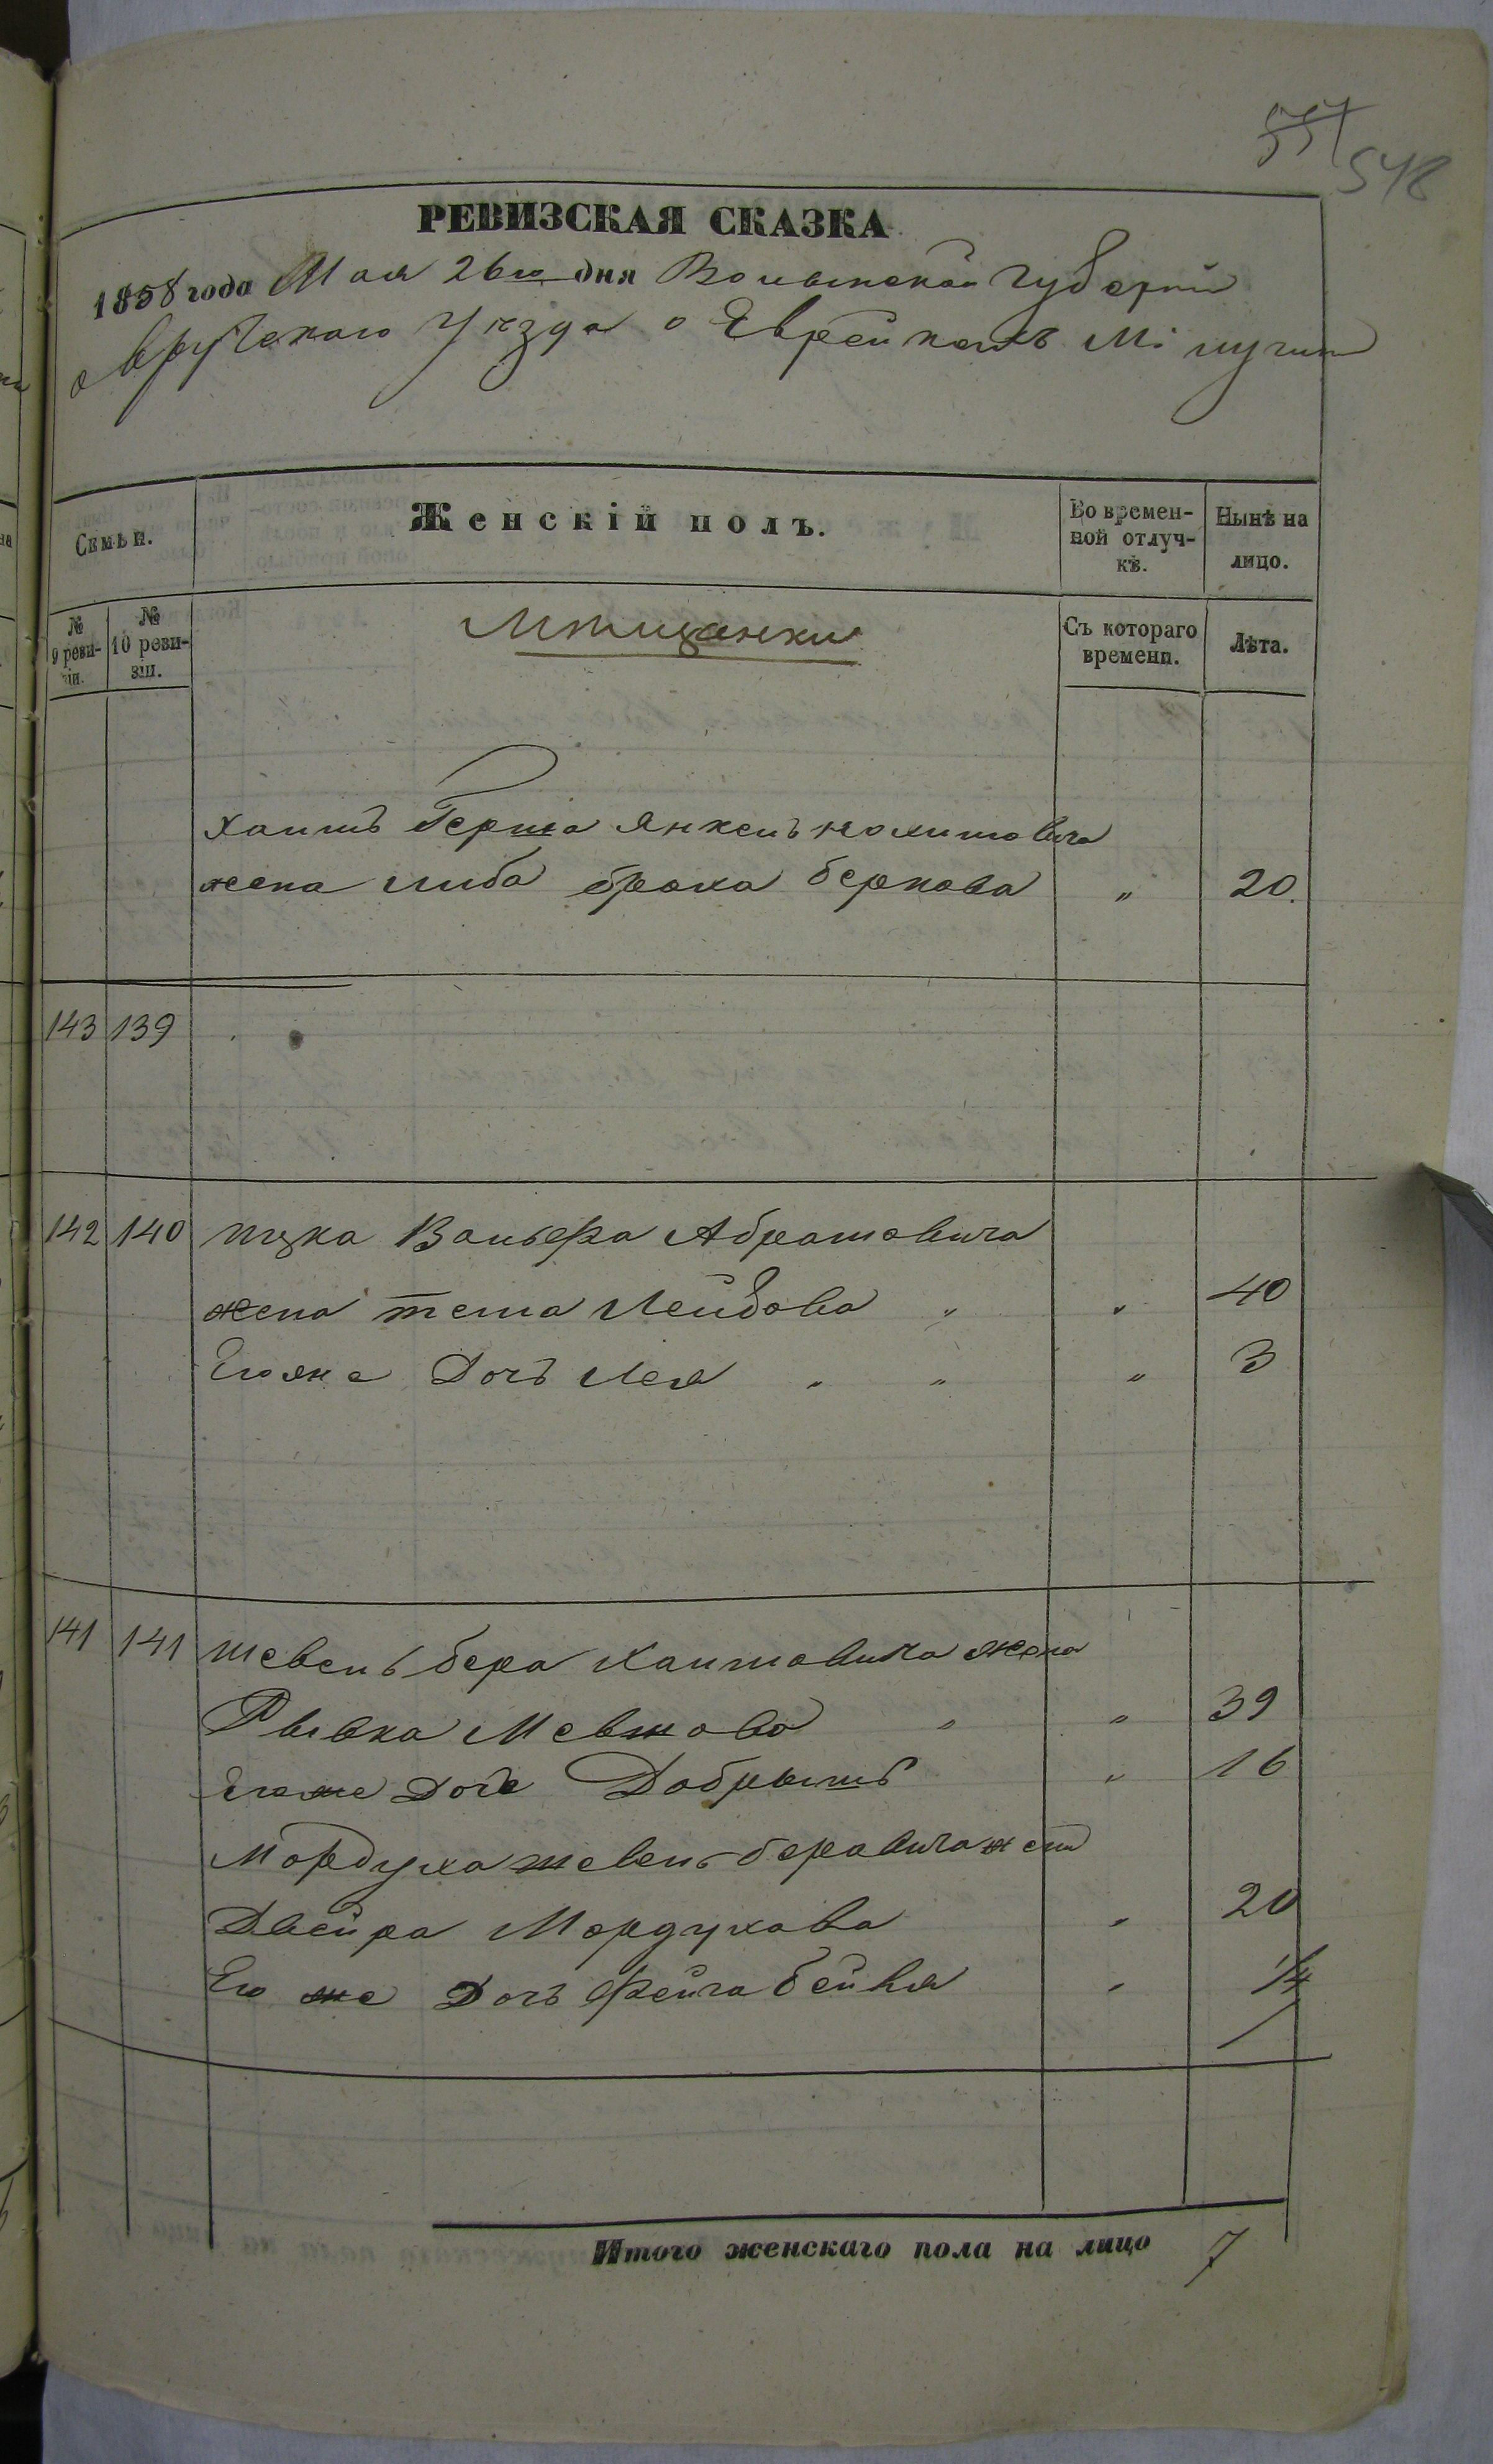 551
548
РЕВИЗСКАЯ СКАЗКА
1858 года Мая 26го дня Волынской Губернии
овручскаго Уезда о Еврейкахъ М:
Семьи.
Женскій полъ.
Во времен-
ной отлуч-
кѣ.
Нынѣ на
лицо.
№
9 реви-
зіи.
№
10 реви-
зіи.
Мѣщанки
Съ котораго
времени.
Лѣта.
Хаимъ Герша Янкель
жена либа броха беркова " 20.
143 139
142 140 ицка Вольфа Абрамовича
жена Тема Лейбова " " 40
Его же Дочь Лея " " " 3
141 141 шевель бера Хаимовича жена
Рывка Мевшова " " 39
Его же Дочь Добрышъ " 16
Мордуха шевель беровича жена
Двейра Мордухова " 20
Его же Дочь Фейга бейля "
Итого женскаго пола на лицо 7